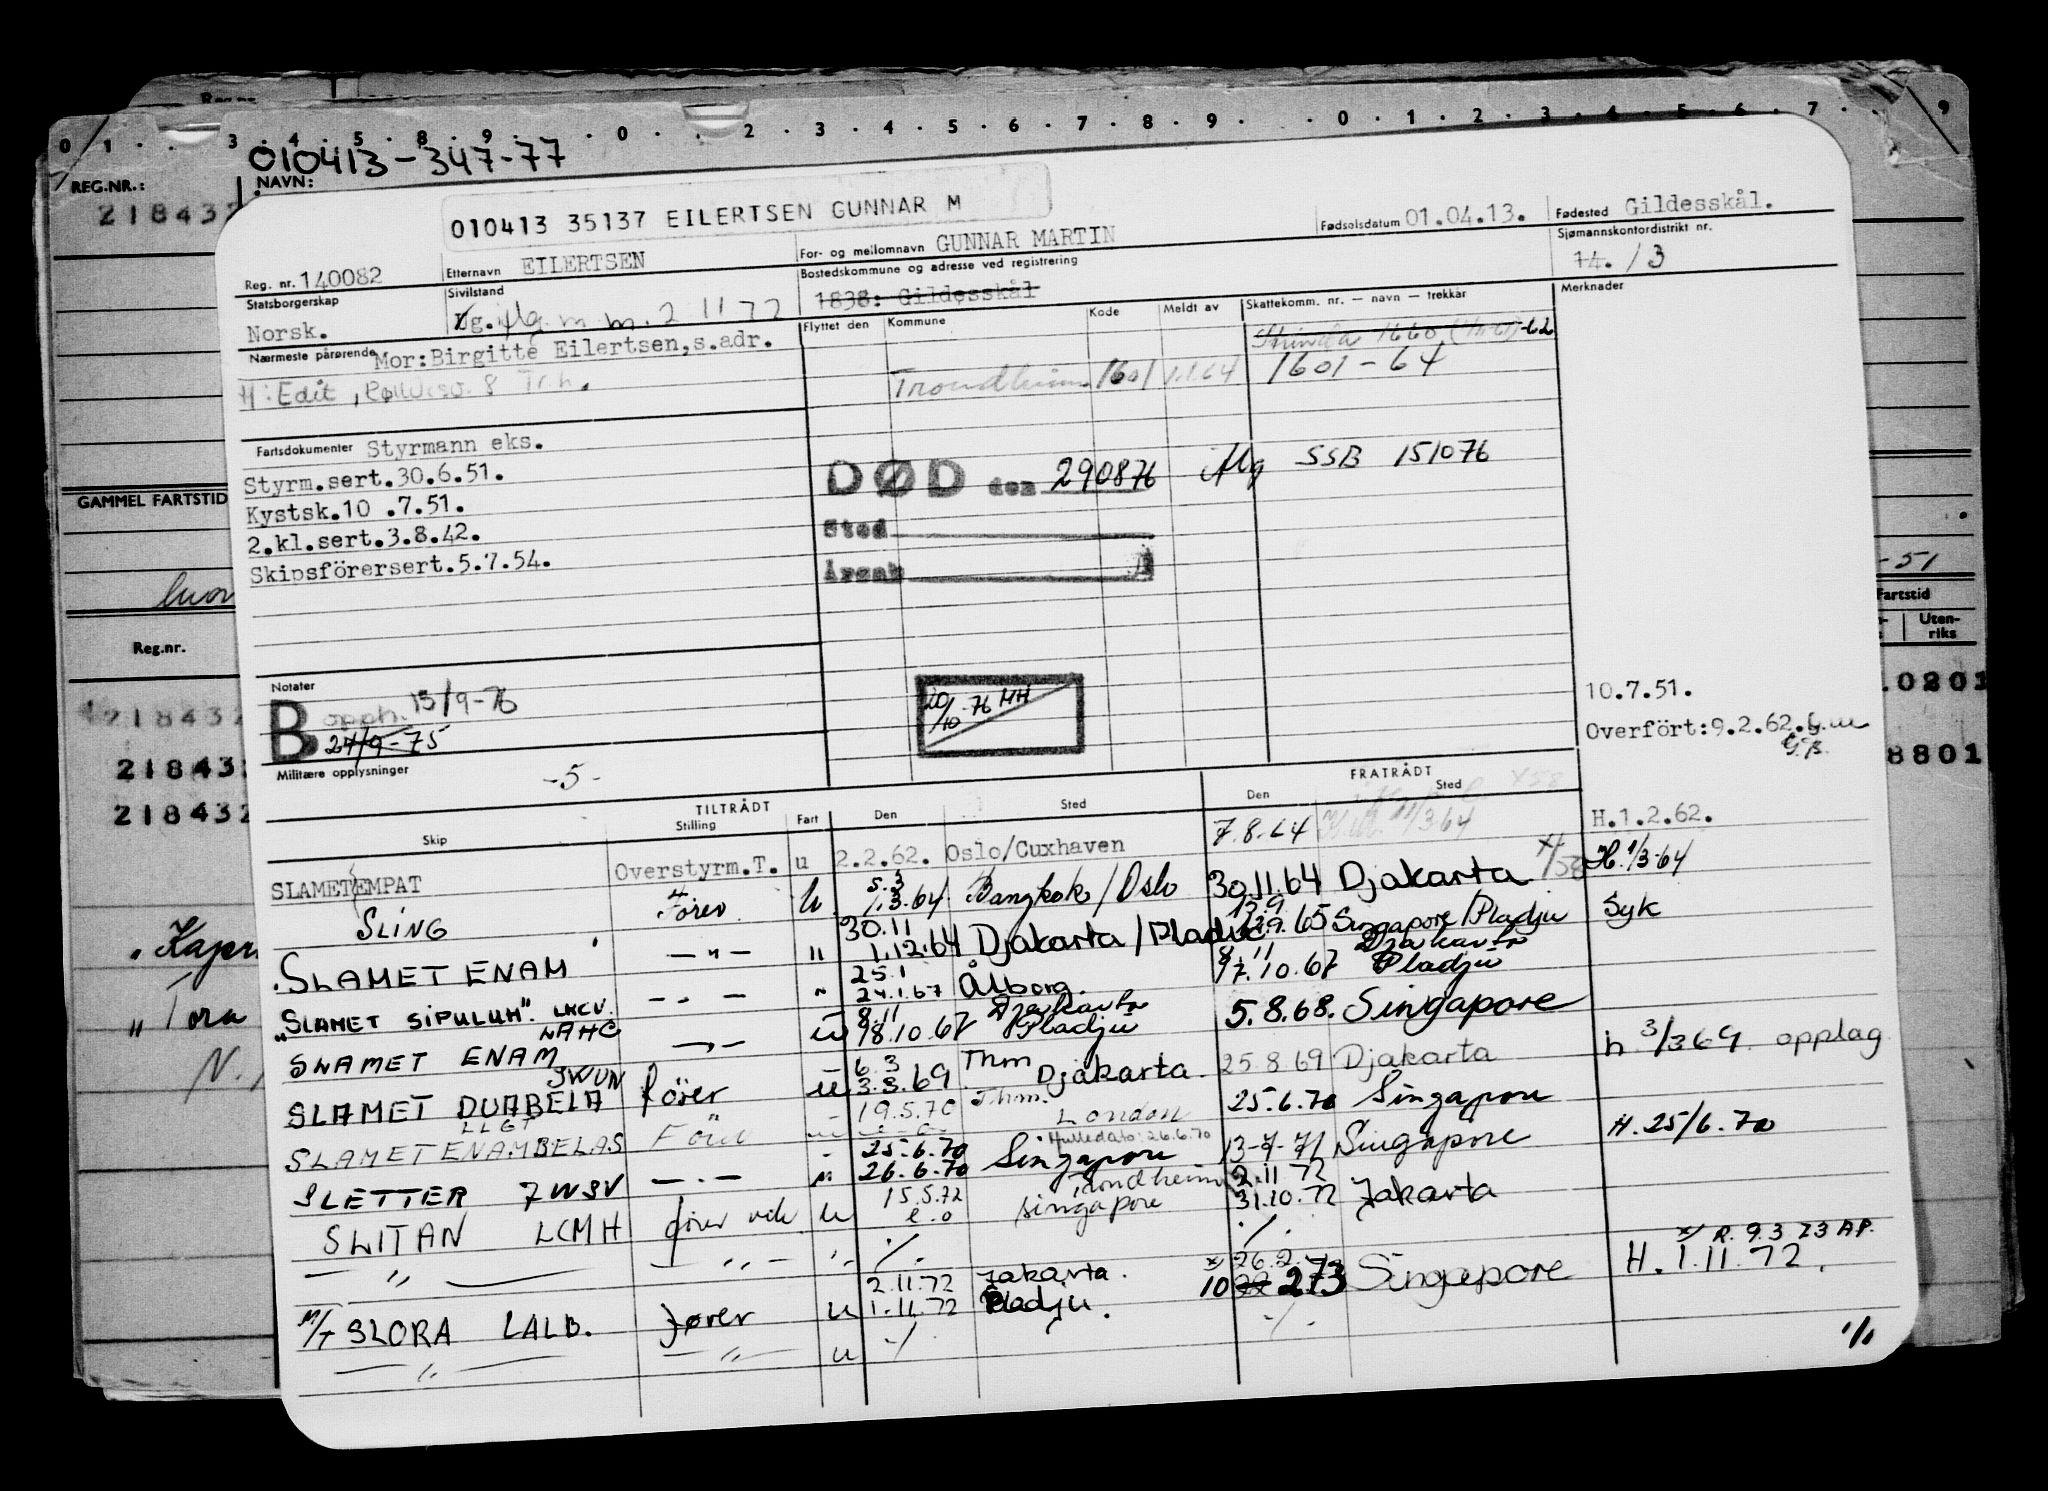 0 1 . . 3 . 4 . 5 . 8 . 9 . . 0 . . 2 . 3 . 4 . 5 . 6 . 7 . 8 . 9 . . 0 . 1 . 2 . 3 . 4 . 5 . 6 . 7 . . 9
010413-347-77
REG.NR.: NAVN:
218432
010413 35137 EILERTSEN GUNNAR M
Reg. nr. 140082 Etternavn EILERTSEN For- og mellomnavn GUNNAR MARTIN Fødselsdatum 01.04.13. Fødested Gildesskål.
Statsborgerskap Norsk. Sivilstand Ug. 2 11 72 Bostedskommune og adresse ved registrering 1838: Gildesskål Sjømannskontordistrikt nr. 14. /3
Nærmeste pårørende Mor:Birgitte Eilertsen,s.adr. Flyttet den Kommune Kode Meldt av Skattekomm. nr. — navn — trekkår Merknader
Strinda 1660 -62
H: Edit, 8 Tr.h. Trondheim 1601 1.1.64 1601-64
Fartsdokumenter Styrmann eks.
Styrm.sert.30.6.51. DØD den 290876 Mg SSB 151076
Kystsk.10 .7.51.
GAMMEL FARTSTID
2.kl.sert.3.8.42. Sted
Skipsförersert.5.7.54. Årsak
-51
Fartstid
Uten-
riks
Reg.nr.
Notater
B opph. 15/9-76
24/9-75
20/10-76 HH
10.7.51.
0201
Overfört:9.2.62.
G.B.
218432
218432
218432
8801
Militære opplysninger -5-
TILTRÅDT FRATRÅDT
Skip Stilling Fart Den Sted Den Sted
SLAMET EMPAT Overstyrm.T. u 2.2.62. Oslo/Cuxhaven 7.8.64 11/3 64 x58 H.1.2.62.
SLING Förer u 5.3 1.3.64 Bangkok / Oslo 30.11.64 Djakarta x/58 H. 1/3-64
SLAMET ENAM — " — " 30.11 1.12.64 Djakarta / Pladju 12.9 65 Singapore/Pladju Syk
"SLAMET SIPULUH" LKCV. — " — " 25.1 24.1.67 Ålborg. 8.11 17.10.67 Djakarta Pladju
SLAMET ENAM LAHC — " — u 8.11 18.10.67 Djakarta Pladju 5.8.68. Singapore
SLAMET DUABELA JWUN förer u 6.3 3.3.69 Thm Djakarta. 25.8.69 Djakarta h. 3/3 69 opplag
SLAMET ENAMBELAS LLGT Förer 19.5.70 Thm. London 25.6.70 Singapore
SLETTER 7WSV — " — " 25.6.70 26.6.70 Singapore Hulledato: 26.6.70 13-7-71 Singapore H. 25/6.70
SLITAN LCMH förer u 15.5.72 e.o Trondheim singapore 2.11 72 31.10.72 Jakarta
— " — — " — " ./. ./.
x/ R. 9.3 73 AP.
M/T SLORA LALB. fører u 2.11.72 1.11.72 Jakarta. Pladju. x 26.2. 10 273 Singapore H. 1.11.72.
— " — — " — u ./. ./.
1/1
" Kapr
" Tora
N.